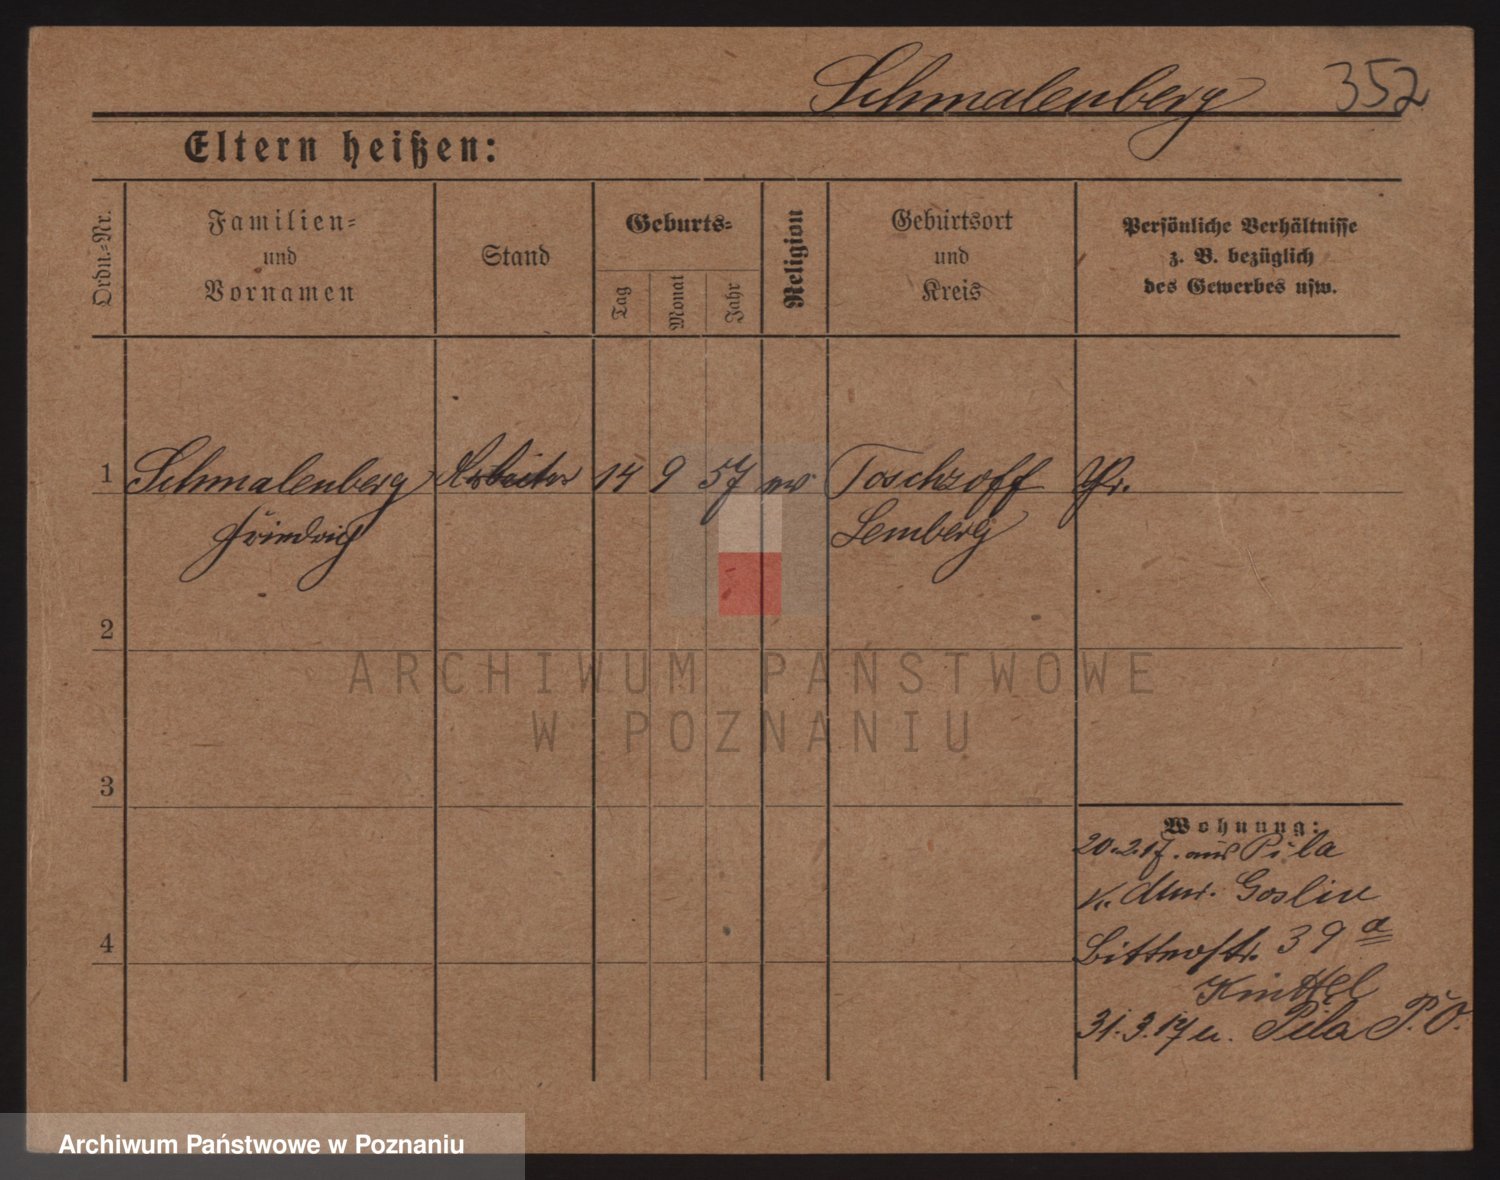 Schmalenberg 352
Eltern heißen:
Ordn.-Nr.
Familien-
und
Vornamen
Stand
Geburts-
Tag
Monat
Jahr
Religion
Geburtsort
und
Kreis
Persönliche Verhältnisse
z. B. bezüglich
des Gewerbes usw.
1 Schmalenberg Arbeiter 14 9 57 ev Toschzoff Pr.
Friedrich Lemberg
2
3
4
Wohnung:
20.2.17. aus Pila
Goslin
Bitterstr. 39 a
Knittel
31.3.17 n. Pila P. O.
ARCHIWUM PAŃSTWOWE
W POZNANIU
Archiwum Państwowe w Poznaniu